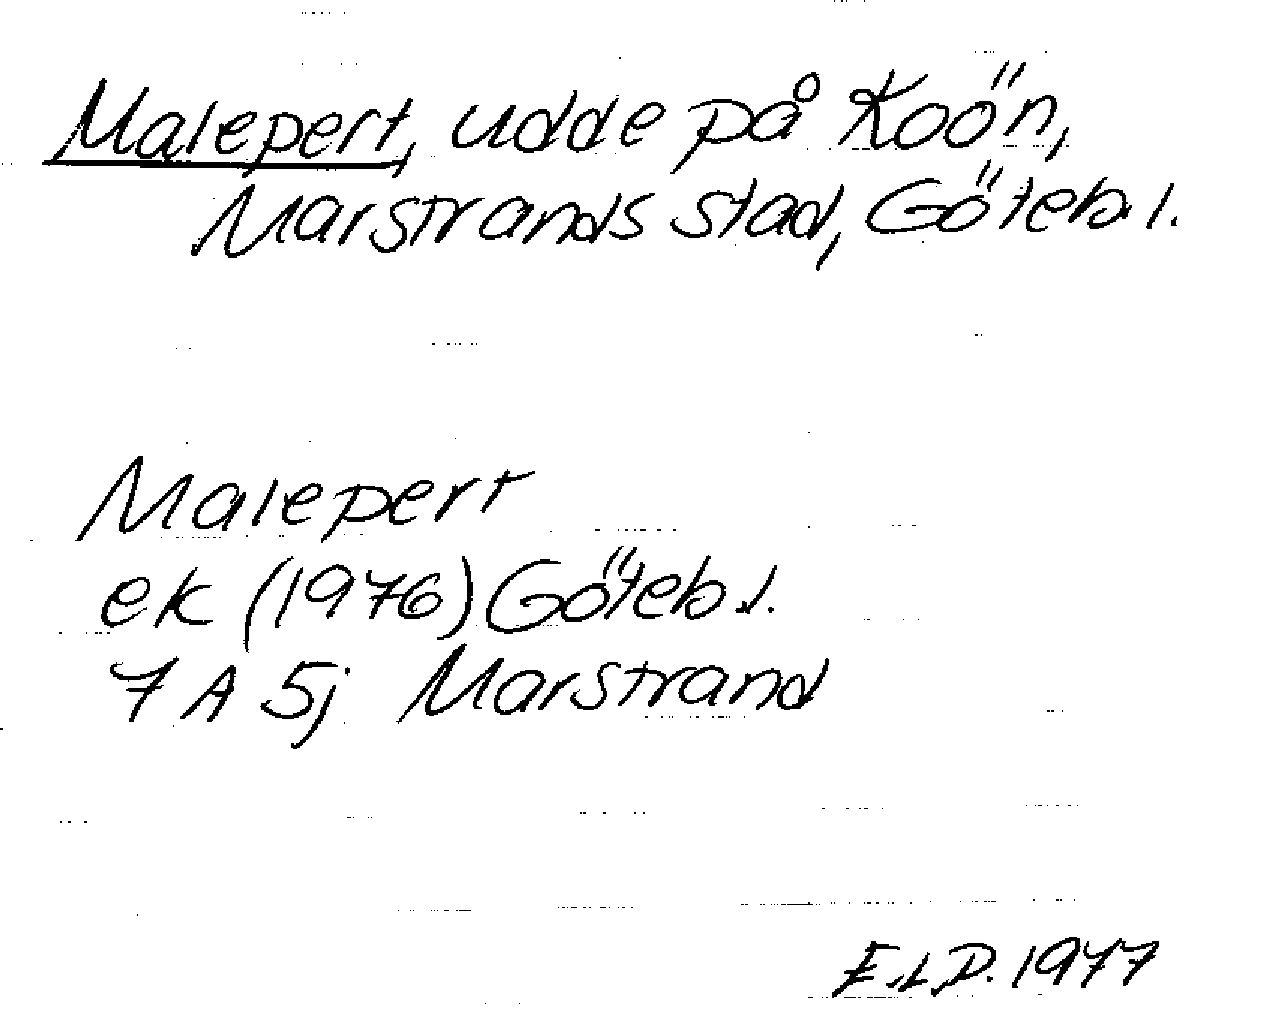 Malepert, udde på Koön,
Marstrands stad, Göteb. l.
Malepert
ek (1976) Göteb. l.
7 A 5j Marstrand
E.L.D. 1977